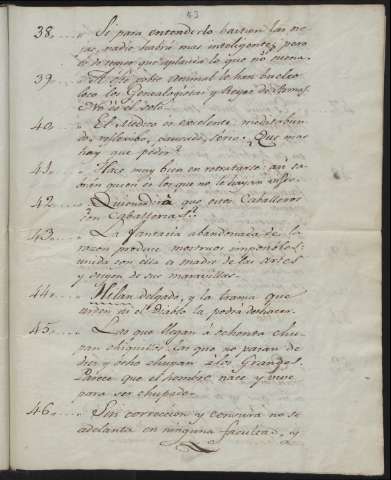 43
38..... „ Si para entenderlo bastan las ore-
jas, nadie habrá mas inteligente; pero
es de temer que aplauda lo que no suena.
39.... „ A este pobre animal lo han buelto
loco los Genealogistas y Reyes de Armas.
No es el solo.
40..... „ El Medico es excelente, meditabun-
do, reflexibo, pausado, serio. Que mas
hay que pedir?
41..... „ Hace muy bien en retratarse: asi sa-
brán quien es los que no le hayan visto.
42..... „ Quien dirá que estos Caballeros
son Caballerias.
43..... „ La fantasia abandonada de la
razon produce mostruos imposibles:
unida con ella es madre de las artes
y origen de sus maravillas.
44.... „ Hilan delgado, y la trama que
urden ni el Diablo la podrá deshacer.
45..... „ Los que llegan á ochenta chu-
pan chiquillos: los que no pasan de
diez y ocho chupan á los Grandes.
Parece que el hombre nace y vive
para ser chupado.
46..... „ Sin correccion y censura no se
adelanta en ninguna facultad, y